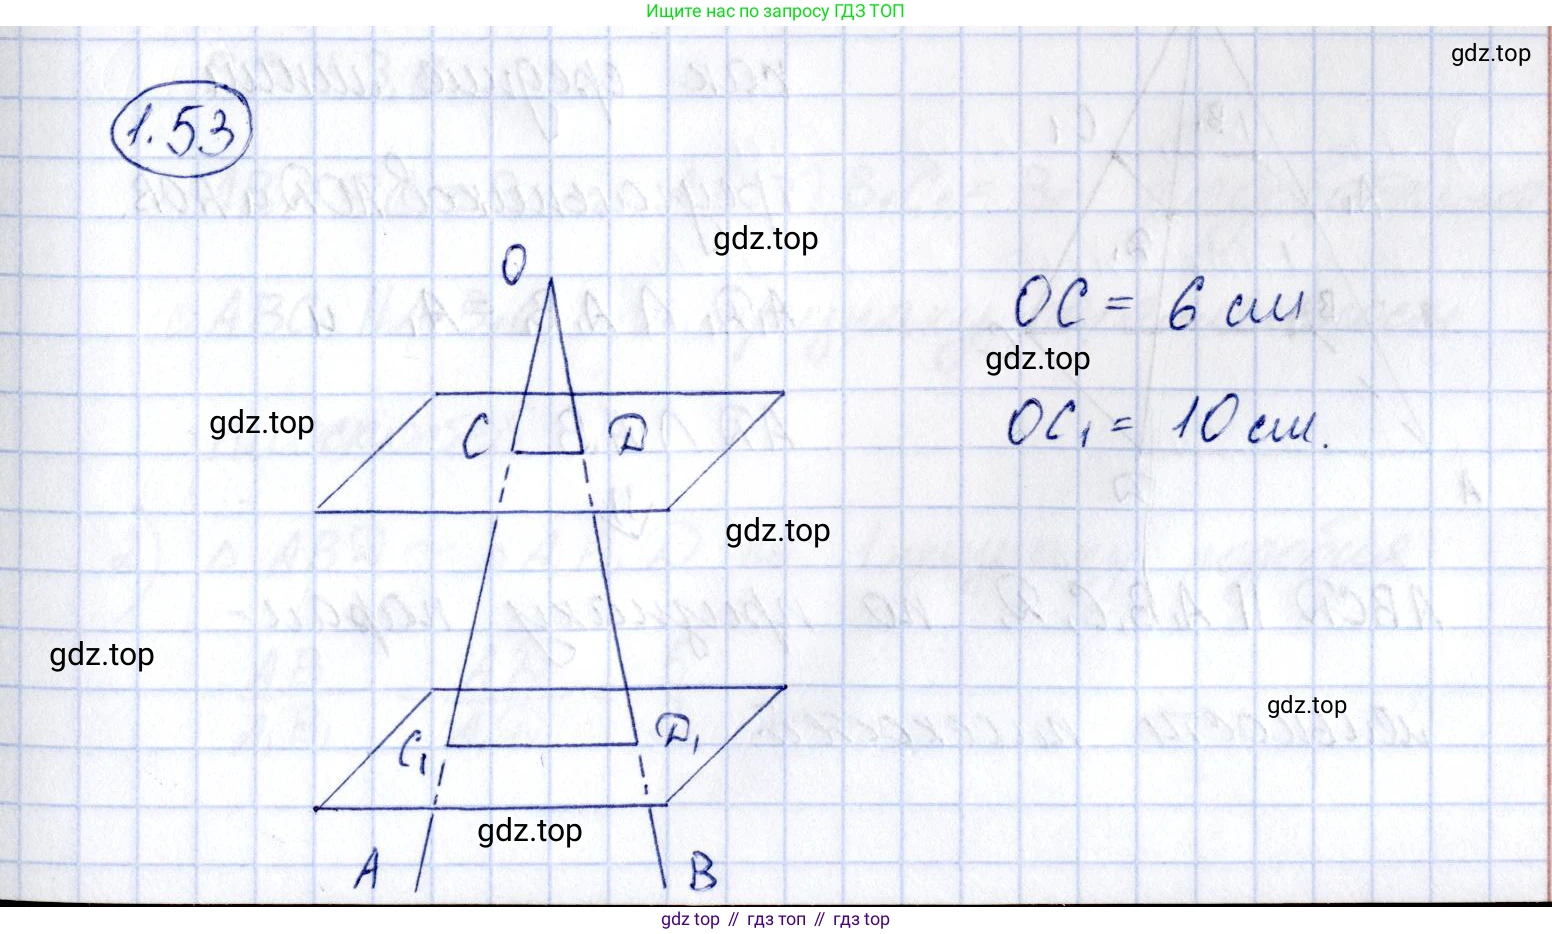 Ищите нас по запросу ГДЗ ТОП
gdz.top
1.53
gdz.top
O
OC = 6 см
gdz.top
gdz.top
C D
OC₁ = 10 см.
gdz.top
gdz.top
gdz.top
C₁ D₁
gdz.top
A B
gdz top // гдз топ // gdz top